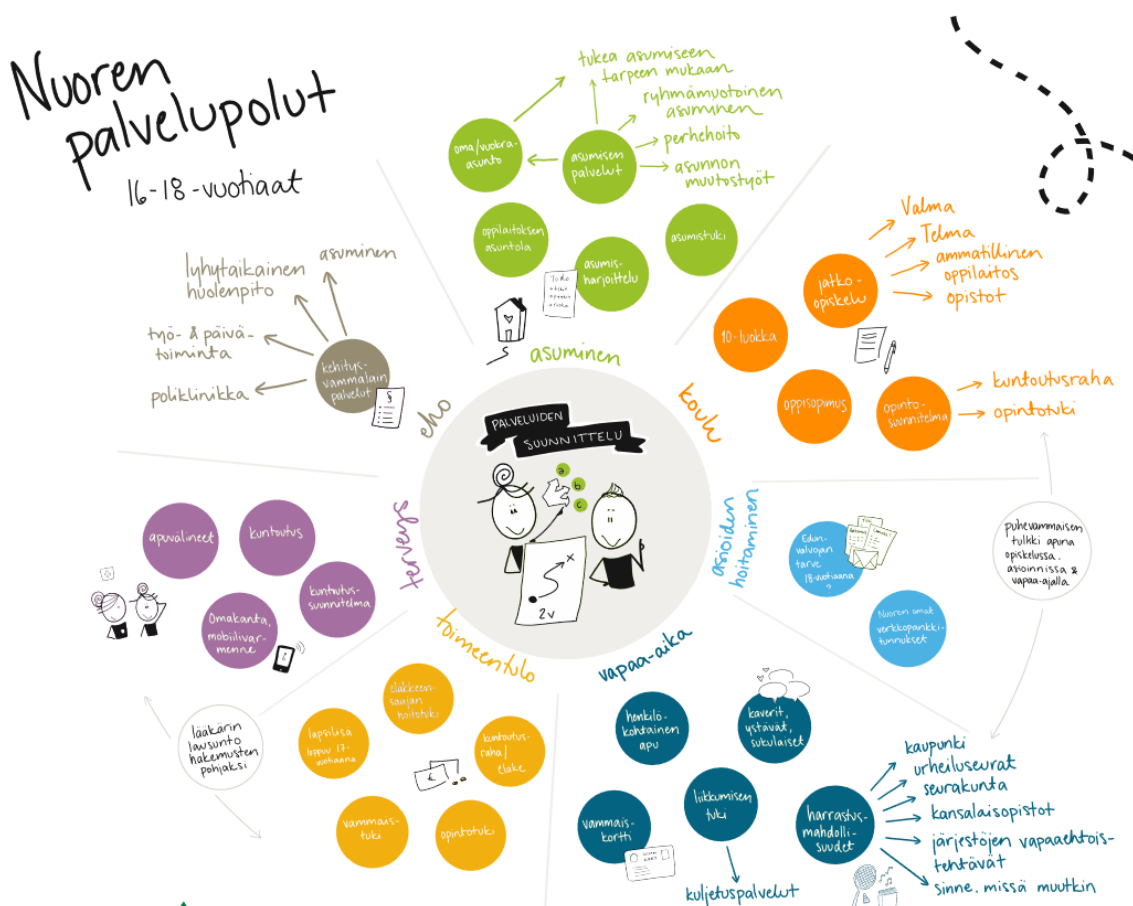 Nuoren
palvelupolut
16-18-vuotiaat
tukea asumiseen
tarpeen mukaan
ryhmämuotoinen
asuminen
perhehoito
asunnon
muutostyöt
oma/vuokra-
asunto
asumisen
palvelut
oppilaitoksen
asuntola
asumis-
harjoittelu
asumistuki
asuminen
Valma
Telma
ammatillinen
oppilaitos
opistot
jatko-
opiskelu
10-luokka
oppisopimus
opinto-
suunnitelma
kuntoutusraha
opintotuki
koulu
asuminen
lyhytaikainen
huolenpito
työ- & päivä-
toiminta
poliklinikka
kehitys-
vammalain
palvelut
§
eho
PALVELUIDEN
SUUNNITTELU
a
b
c
x
2v
asioiden
hoitaminen
Edun-
valvojan
tarve
18-vuotiaana
?
Nuoren omat
verkkopankki-
tunnukset
puhevammaisen
tulkki apuna
opiskelussa,
asioinnissa &
vapaa-ajalla
terveys
apuvälineet
kuntoutus
kuntoutus-
suunnitelma
Omakanta,
mobiilivar-
menne
lääkärin
lausunto
hakemusten
pohjaksi
toimeentulo
eläkkeen-
saajan
hoitotuki
lapsilisä
loppuu 17-
vuotiaana
kuntoutus-
raha/
eläke
vammais-
tuki
opintotuki
€
vapaa-aika
henkilö-
kohtainen
apu
kaverit,
ystävät,
sukulaiset
liikkumisen
tuki
vammais-
kortti
kuljetuspalvelut
harrastus-
mahdolli-
suudet
kaupunki
urheiluseurat
seurakunta
kansalaisopistot
järjestöjen vapaaehtois-
tehtävät
sinne, missä muutkin